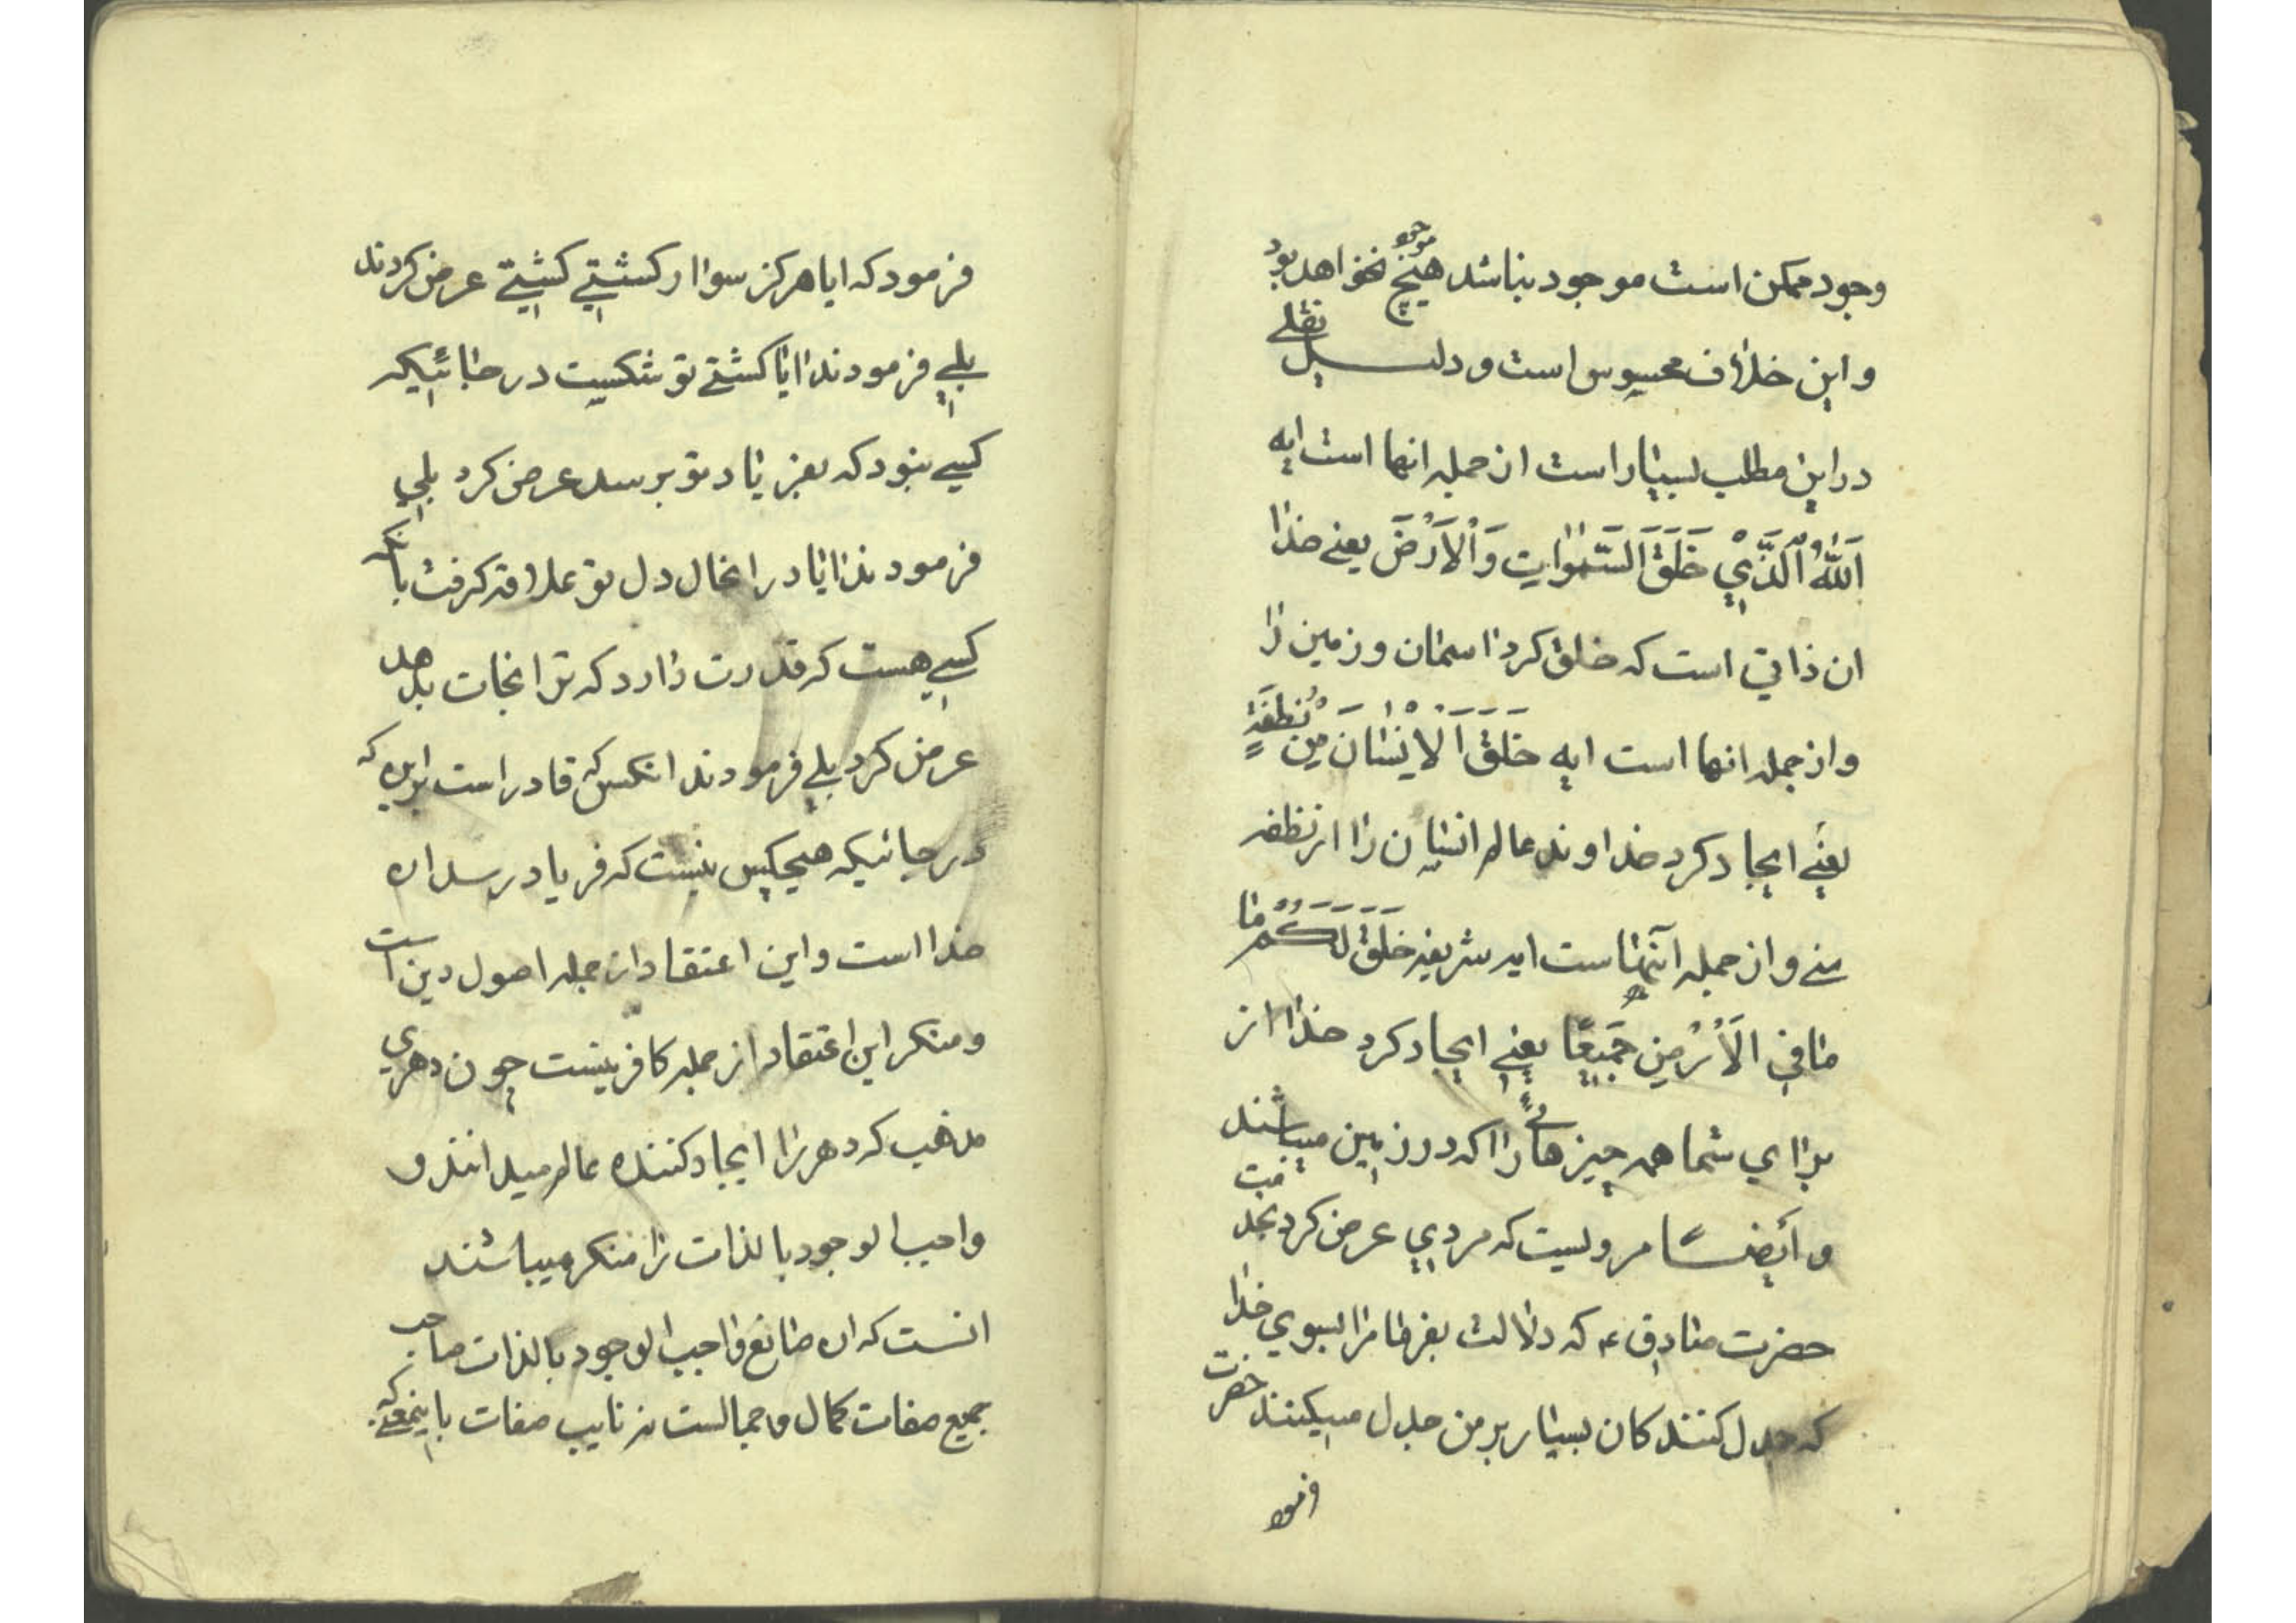 وجود ممکن است موجود نباشد هیچ موجود نخواهد بود
و این خلاف محسوس است و دلیل نقلے
در این مطلب بسیار است از جمله انها است ایه
اَللّٰهُ الَّذَّيْ خَلَقَ السَّمٰوٰاتِ وَالْاَرْضَ یعنے خدا
ان ذاتی است که خلق کرد اسمان و زمین را
و از جمله انها است ایه خَلَقَ اَلْاِنْسٰانَ مِنْ نُطْفَةٍ
یعنے ایجاد کرد خداوند عالم انسان را از نطفه
منے و از جمله آنهاست ایه شریفه خَلَقَ لَكُمْ مٰا
مٰا فِي الْاَرْضِ جَمیعًا یعنے ایجاد کرد خدا از
برای شما همه چیزهائے را که در زمین میباشند
و أیضًا مرویست که مردي عرض کرد بخدمت
حضرت صادق ع که دلالت بفرما مرا بسوی خدا
که جدل کنندکان بسیار بر من جدل میکنند حضرت
فرمود
فرمود که ایا هرکز سوار کشتے کشتے عرض کردند
بلے فرمودند ایا کشتے تو شکست در جائیکه
کسے نبود که بفریاد تو برسد عرض کرد بلي
فرمودند ایا در انحال دل تو علاقه کرفت بانکه
کسے هست که قدرت دارد که ترا نجات بدهد
عرض کرد بلے فرمودند انکس که قادر است براین که
در جائیکه هیچکس نیست که فریاد رسد ان
خدا است و این اعتقاد از جمله اصول دین است
و منکر این اعتقاد از جمله کافرینست چون دهری
مذهب که دهر را ایجاد کننده عالم میدانند و
واجب الوجود بالذات را منکر میباشند
انست که ان صانع واجب الوجود بالذات صاحب
جمیع صفات کمال و جمالست نه نایب صفات باینمعنے که